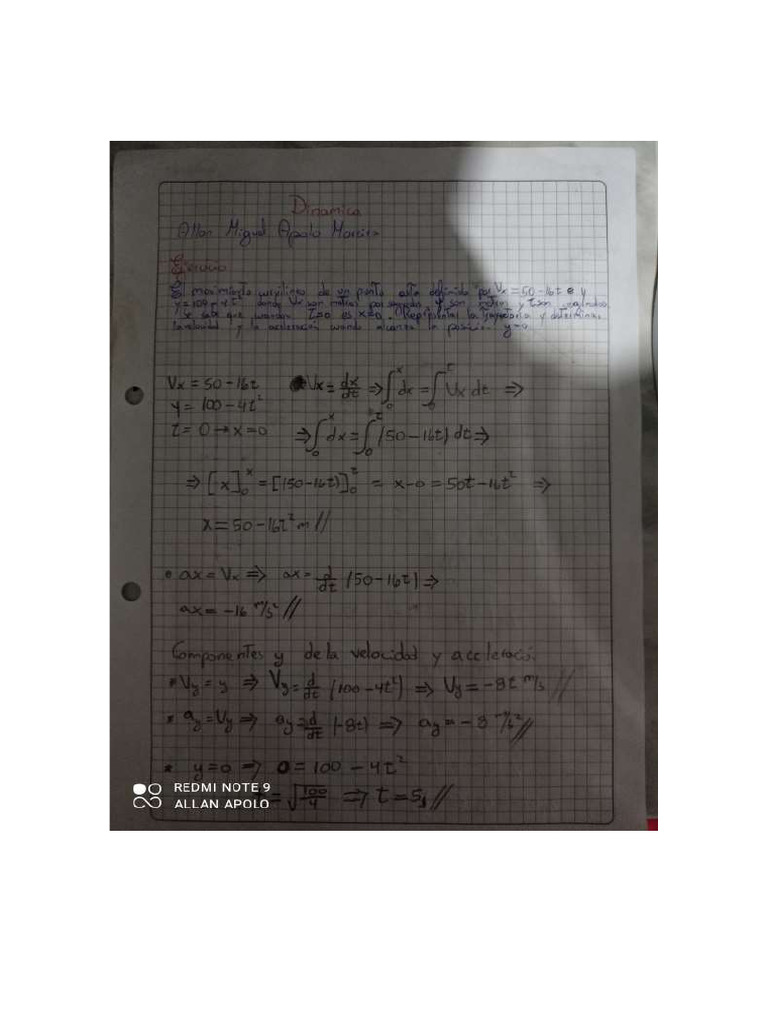 Dinamica
Allan Miguel Apolo Moreira
Ejercicio
El movimiento curvilineo de un punto esta definido por Vx = 50 - 16t e y
y = 100 - 4t² donde Vx son metros por segundo, y son metros y t son segundos
Se sabe que cuando t=0 es x=0. Representar la trayectoria y determinar
la velocidad y la aceleración cuando alcanza la posición y=0
Vx = 50 - 16t Vx = dx/dt ⇒ ∫₀ˣ dx = ∫₀ᵗ Vx dt ⇒
y = 100 - 4t²
t = 0 → x = 0 ⇒ ∫₀ˣ dx = ∫₀ᵗ (50 - 16t) dt ⇒
⇒ [x]₀ˣ = [(50 - 16t)]₀ᵗ = x - 0 = 50t - 16t² ⇒
x = 50 - 16t² m //
• ax = Vx ⇒ ax = d/dt (50 - 16t) ⇒
ax = -16 m/s² //
Componentes y de la velocidad y aceleració
• Vy = y ⇒ Vy = d/dt (100 - 4t²) ⇒ Vy = -8t m/s //
• ay = Vy ⇒ ay = d/dt (-8t) ⇒ ay = -8 m/s² //
• y = 0 ⇒ 0 = 100 - 4t²
= √100/4 ⇒ t = 5s //
REDMI NOTE 9
ALLAN APOLO